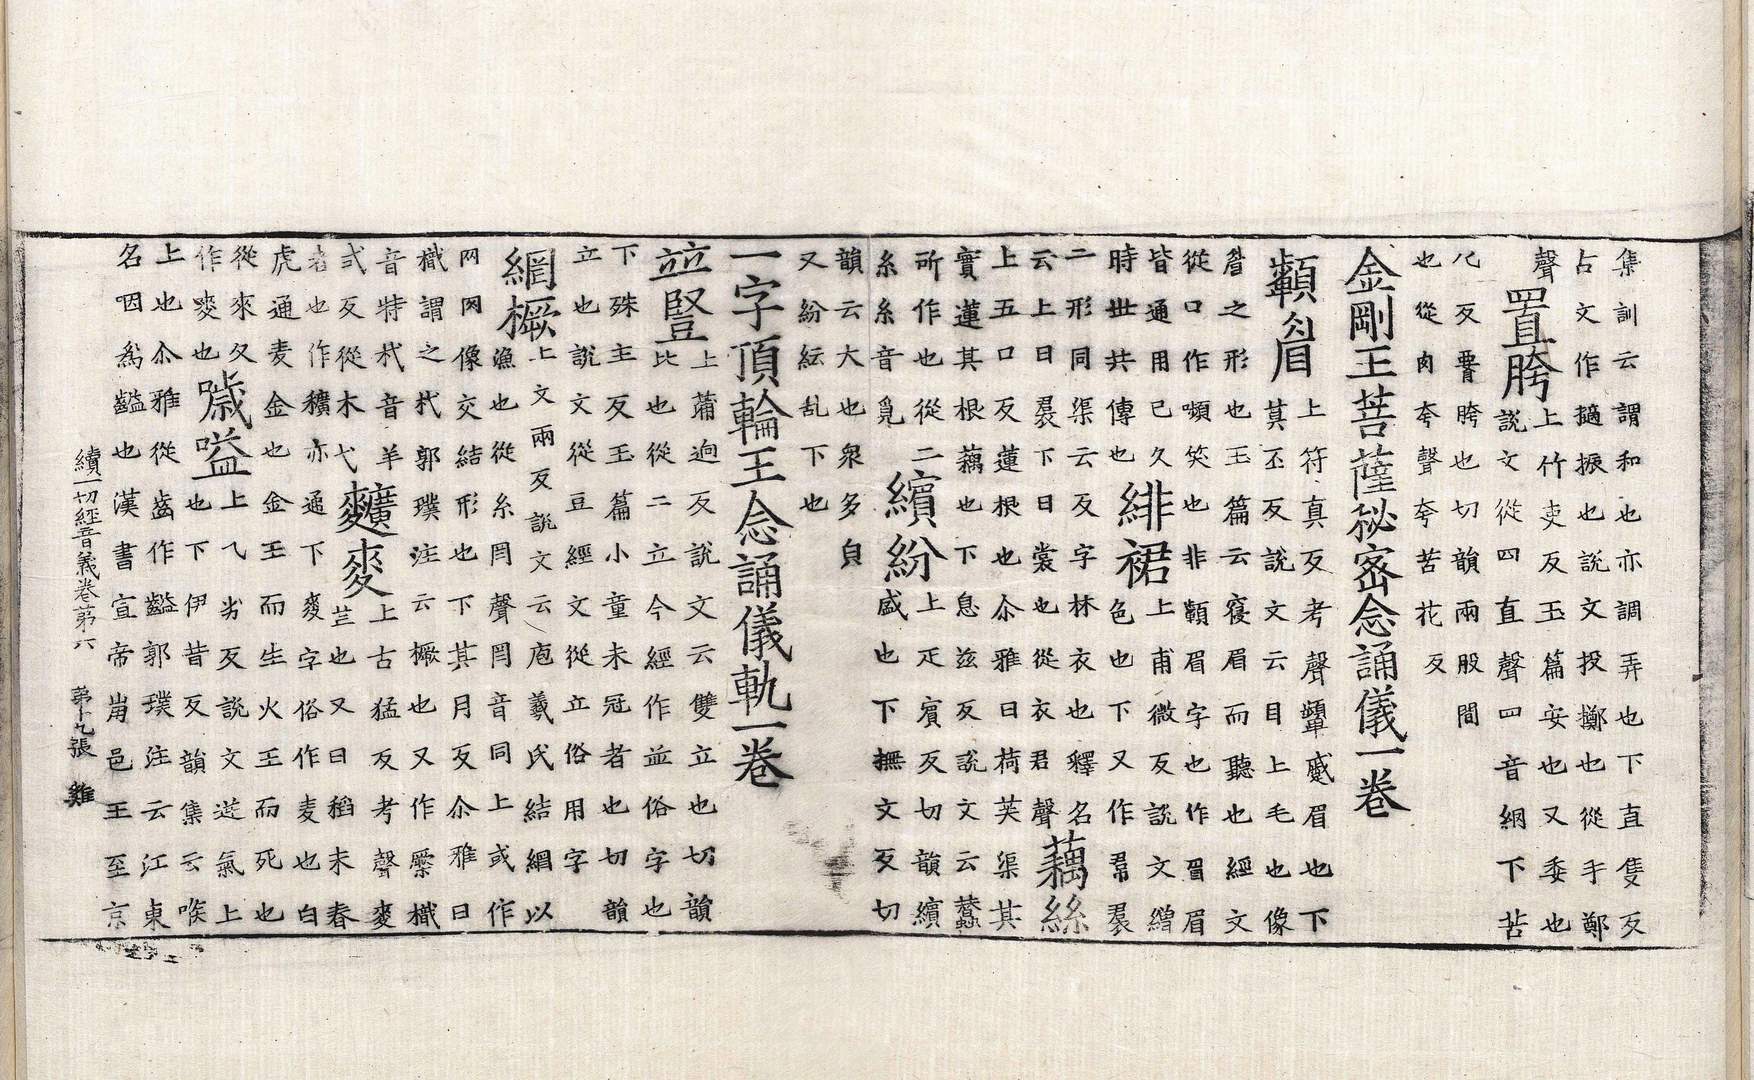 集訓云謂和也亦調弄也下直隻反
占文作擿振也說文投擲也從手鄭
聲
置胯
上竹吏反玉篇安也又委也
說文從四直聲四音網下苦
八反䯊胯也切韻兩股間
也從肉夸聲夸苦花反
金剛王菩薩秘密念誦儀一卷
顰眉
上符真反考聲顰蹙眉也下
莫丕反說文云目上毛也像
眉之形也玉篇云寑眉而聽也經文
從口作嚬笑也非顰眉字也作睂眉
皆通用已久
時世共傳也
緋裙
上甫微反說文繒
色也下又作帬裠
二形同渠云反字林衣也釋名
云上曰裠下曰裳也從衣君聲
藕絲
上五口反蓮根也尒雅曰荷芙渠其
實蓮其根藕也下息茲反說文云蠶
所作也從二
糸糸音覓
繽紛
上疋賓反切韻繽
盛也下撫文反切
韻云大也眾多皃
又紛紜乱下也
一字頂輪王念誦儀軌一卷
竝豎
上蒲迥反說文云雙立也切韻
比也從二立今經作並俗字也
下殊主反玉篇小童未冠者也切韻
立也說文從豆經文從立俗用字
網橛
上文兩反說文云庖羲氏結網以
漁也從糸罔聲罔音同上或作
网罔像交結形也下其月反尒雅曰
樴謂之杙郭璞注云橛也又作橜樴
音特杙音羊
式反從木弋
䵃麥
上古猛反考聲麥
芒也又曰稻未舂
者也作穬亦通下麥字俗作麦也白
虎通麦金也金王而生火王而死也
從來夊
作麥也
噦嗌
上乀劣反說文逆氣上
也下伊昔反韻集云喉
上也尒雅從齒作齸郭璞注云江東
名咽為齸也漢書宣帝崩邑王至京
續一切經音義卷第六 第十九張 雞